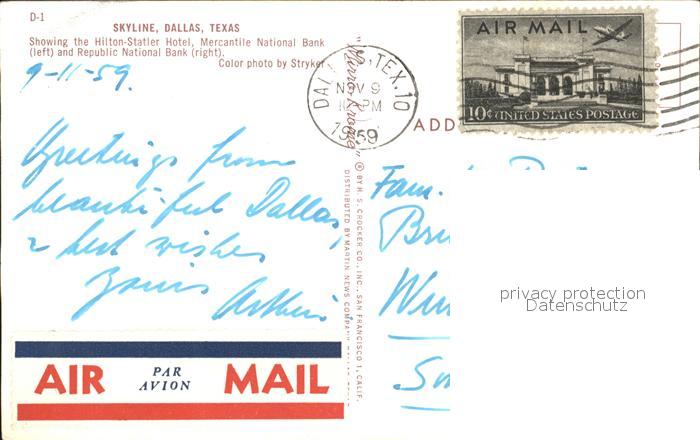 D-1
SKYLINE, DALLAS, TEXAS
Showing the Hilton-Statler Hotel, Mercantile National Bank
(left) and Republic National Bank (right).
Color photo by Stryker
9-11-59.
Greetings from
beautiful Dallas,
& best wishes
Yours
Arthur
AIR PAR AVION MAIL
"Mirro-Krome" ® BY H. S. CROCKER CO., INC., SAN FRANCISCO 1, CALIF.
DISTRIBUTED BY MARTIN NEWS COMPANY
DAL TEX. 10
NOV 9
PM
1959
AIR MAIL
10¢ UNITED STATES POSTAGE
ADD
Fam.
Bru
Win
privacy protection
Datenschutz